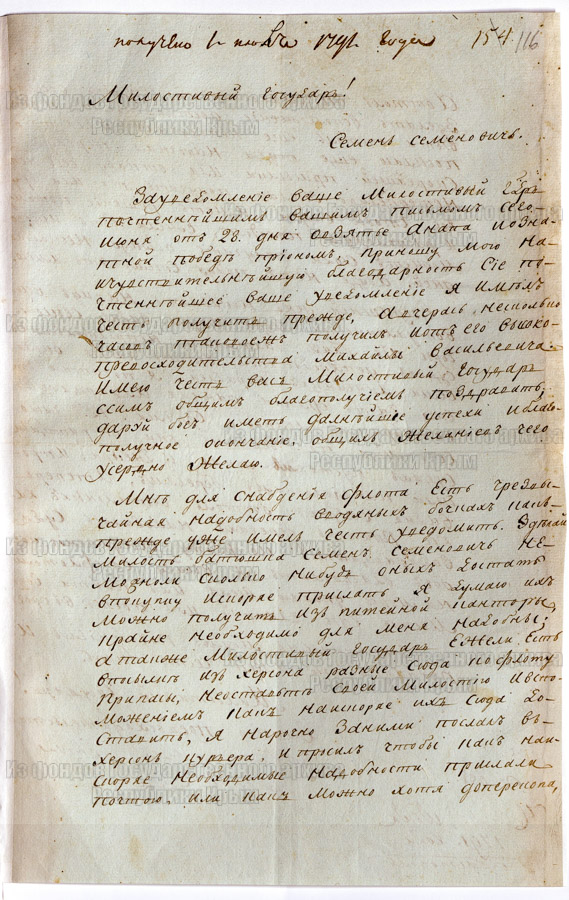 получено 1 июля 1791 года 154 116
Милостивый Государь!
Семенъ Семеновичь.
За уведомленіе ваше Милостивый Гдрь
почтеннѣйшимъ вашимъ письмомъ сего
июня отъ 28. дня овзятье Анапа иозна
тной победѣ приношу мою на
ичувствительнѣйшую благодарность Сіе по
чтеннѣйшее ваше уведомленіе Я имѣлъ
честь получить прежде, а вчерась несколько
часовъ получилъ иотъ его высоко-
превосходительства Михайлы Васильевича.
Имею честь васъ Милостивый Государь
ссимъ общимъ благополучіемъ поздравить,
даруй богъ иметь далнѣйшие успехи и благо
получное окончание, общимъ желаніемъ всего
усердно желаю.
Мнѣ для снабденія флота есть чрезвы-
чайная надобность вводяныхъ бочкахъ какъ
прежде уже имелъ честь уведомить. Зделай
милость батюшка Семенъ Семеновичь не-
можноли сколько нибудь оныхъ достать
впокупку искоре прислать Я думаю ихъ
можно получить изъ питейной канторы,
крайне необходимо для меня надобные;
а также Милостивый Государь ежели есть
изъ херсона разные сюда пофлоту
припасы, неоставьте своей милостію ивспо-
моженіемъ какъ наискоре ихъ сюда до-
ставить, я нарочно заними послалъ въ-
херсонъ курьера, и просилъ чтобы какъ наи-
скоре необходимые надобности прислали
почтою, или какъ можно хотя доперекопа,
Из фондов Государственного архива
Республики Крым